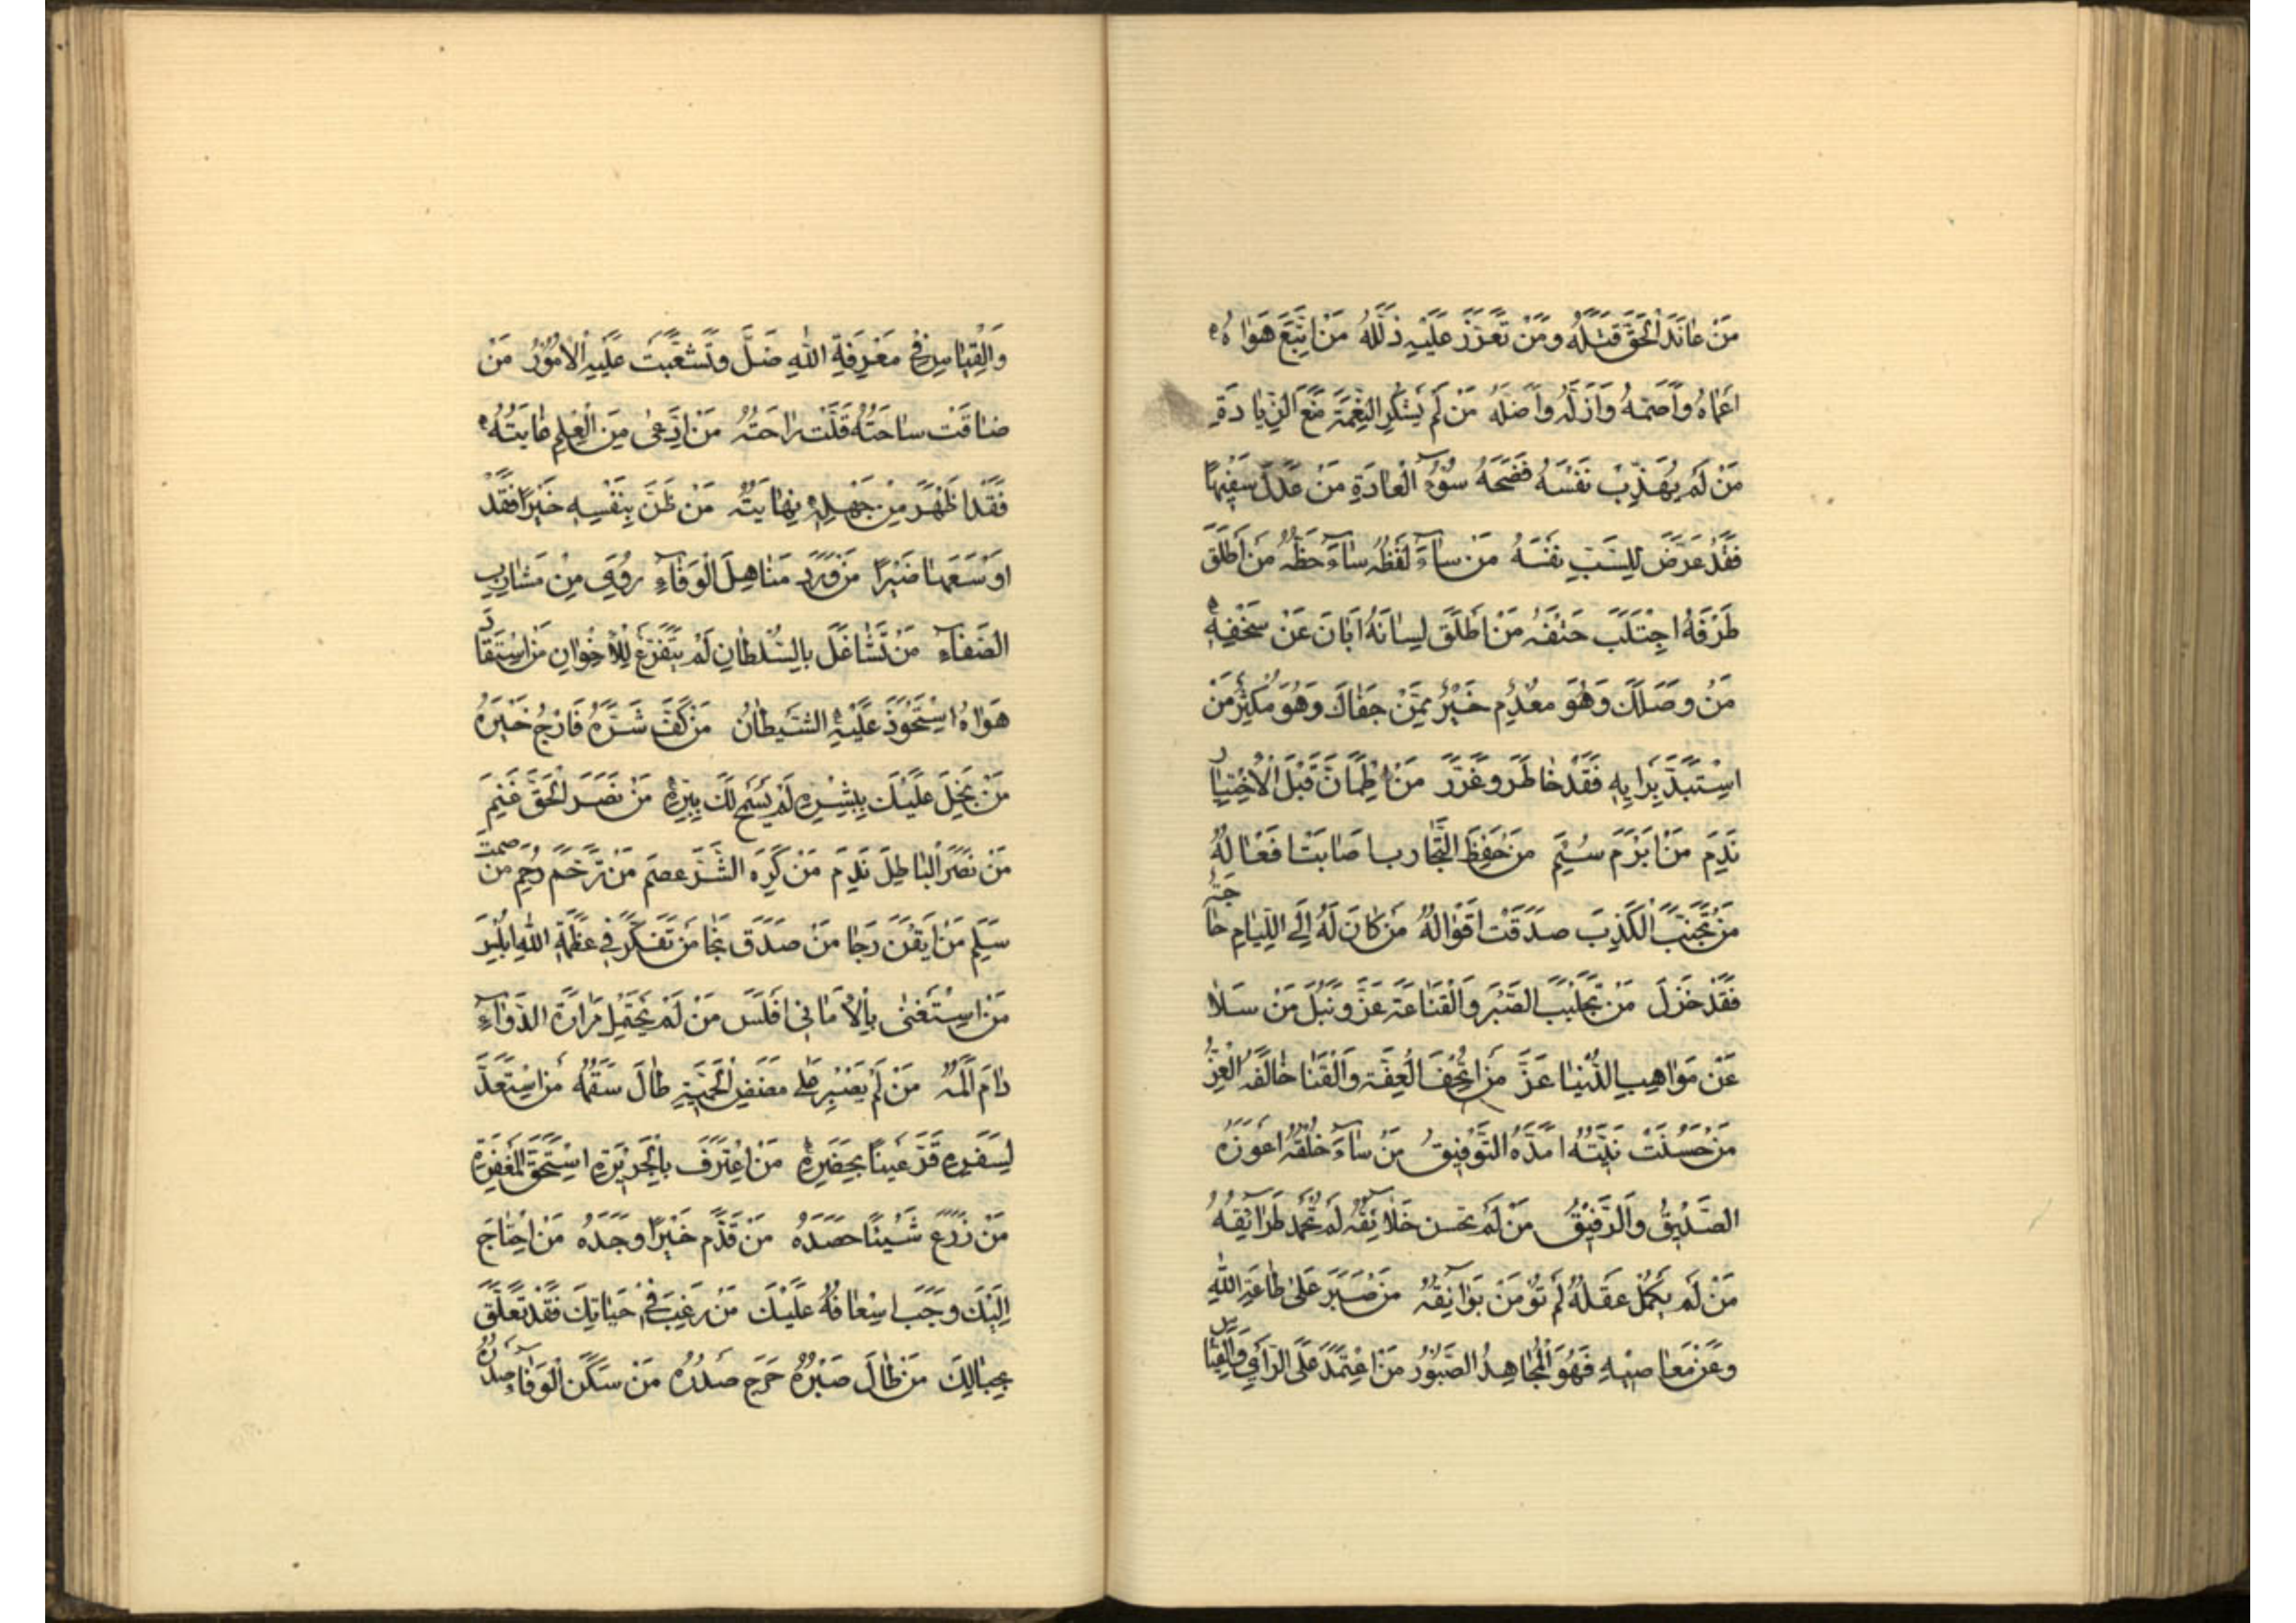 مَنْ عَانَدَ الْحَقَّ قَتَلَهُ وَمَنْ تَعَزَّزَ عَلَيْهِ ذَلَّلَهُ مَنْ اتَّبَعَ هَوَاهُ
اَعْمَاهُ وَاَصَمَّهُ وَاَزَلَّهُ وَاَضَلَّهُ مَنْ لَمْ يَشْكُرِ النِّعْمَةَ مَنَعَ الزِّيَادَةِ
مَنْ لَمْ يُهَذِّبْ نَفْسَهُ فَضَحَهُ سُوْءُ الْعَادَةِ مَنْ عَذَلَ سَفِيْهًا
فَقَدْ عَرَّضَ لِلسَّبِّ نَفْسَهُ مَنْ سَاءَ لَفْظُهُ سَاءَ حَظُّهُ مَنْ اَطْلَقَ
طَرْفَهُ اجْتَلَبَ حَتْفَهُ مَنْ اَطْلَقَ لِسَانَهُ اَبَانَ عَنْ سَخْفِهِ
مَنْ وَصَلَكَ وَهُوَ مُعْدِم خَيْرٌ مِمَّنْ جَفَاكَ وَهُوَ مُكْثِرٌ مَنْ
اسْتَبَدَّ بِرَايِهِ فَقَدْ خَاطَرَ وَغَرَّرَ مَنْ اطْمَانَّ قَبْلَ الْاِخْتِيَار
نَدِمَ مَنْ اَبْرَمَ سُئِمَ مَنْ حَفِظَ التَّجَارب اصَابَتْ افْعَالُهُ
مَنْ تَجَنَّبَ الْكَذِبَ صَدَقَتْ اَقْوَالُهُ مَنْ كَانَ لَهُ اِلَى اللِّيَامِ حَاجَة
فَقَدْ خَزَلَ مَنْ تَجَلْبَبَ الصَّبْرَ وَالْقَنَاعَةَ عَزَّ وَنَبُلَ مَنْ سَلَا
عَنْ مَوَاهِبِ الدُّنْيَا عَزَّ مَنْ اتْحِفَ الْعِفَّةَ وَالْقَنَا حَالَفَهُ الْعِزُّ
مَنْ حَسُنَتْ نِيَّتُهُ اَمَدَّهُ التَّوْفِيْقُ مَنْ سَاءَ خُلْقُهُ اَعْوَزَهُ
الصَّدِيْقُ وَالرَّفِيْقُ مَنْ لَمْ تَحْسُنْ خَلَائِقُهُ لَمْ تُحْمَدْ طَرَائِقُهُ
مَنْ لَمْ يَكْمُلْ عَقْلُهُ لَمْ تُؤْمَنْ بَوَائِقُهُ مَنْ صَبَرَ عَلَى طَاعَةِ اللهِ
وَعَنْ مَعَاصِيْهِ فَهُوَ الْمُجَاهِدُ الصَّبُوْرُ مَنْ اعْتَمَدَ عَلَى الرَّأيِ وَالْقِيَاس
وَالْقِيَاسِ فِيْ مَعْرِفَةِ اللهِ ضَلَّ وَتَشَعَّبَتْ عَلَيْهِ الْاُمُوْرُ مَنْ
ضَاقَتْ سَاحَتُهُ قَلَّتْ رَاحَتُهُ مَنْ ادَّعَى مِنَ الْعِلْمِ غَايَتُهُ
فَقَدْ اَظْهَرَ مِنْ جَهْلِهِ نِهَايَتُهُ مَنْ ظَنَّ بِنَفْسِهِ خَيْرًا فَقَدْ
اَوْسَعَهَا ضَيْرًا مَنْ وَرَدَ مَنَاهِلَ الْوَفَاءِ رُوِيَ مِنْ مَشَارِبِ
الصَّفَاءِ مَنْ تَشَاغَلَ بِالسُّلْطَانِ لَمْ يَتَفَرَّغْ لِلْاِخْوَانِ مَنْ اسْتَقَادَ
هَوَاهُ اسْتَحْوَذَ عَلَيْهِ الشَّيْطَانُ مَنْ كَفَّ شَرَّهُ فَارْجُ خَيْرَهُ
مَنْ بَخِلَ عَلَيْكَ بِبِشْرِهِ لَمْ يَسْمَحْ لَكَ بِبِرِّهِ مَنْ نَصَرَ الْحَقَّ غَنِمَ
مَنْ نَصَرَ الْبَاطِلَ نَدِمَ مَنْ كَرِهَ الشَّرَّ عُصِمَ مَنْ تَرَحَّمَ رُحِمَ مَنْ صَمَتَ
سَلِمَ مَنْ اَيْقَنَ رَجَا مَنْ صَدَقَ نَجَا مَنْ تَفَكَّرَ فِيْ عَظَمَةِ اللهِ اُبْلِسَ
مَنْ اسْتَغْنَى بِالْاَمَانِي اَفْلَسَ مَنْ لَمْ يَحْتَمِلْ مَرَارَةَ الدَّوَاءِ
دَامَ اَلَمُهُ مَنْ لَمْ يَصْبِرْ عَلَى مَضَضِ الْحَمِيَّةِ طَالَ سَقَمُهُ مَنْ اسْتَعَدَّ
لِسَفَرِهِ قَرَّ عَيْنًا بِحَضَرِهِ مَنْ اعْتَرَفَ بِالْجَرِيْرَةِ اسْتَحَقَّ الْمَغْفِرَةِ
مَنْ زَرَعَ شَيْئًا حَصَدَهُ مَنْ قَدَّمَ خَيْرًا وَجَدَهُ مَنْ احْتَاجَ
اِلَيْكَ وَجَبَ اِسْعَافُهُ عَلَيْكَ مَنْ رَغِبَ فِيْ حَيَاتِكَ فَقَدْ تَعَلَّقَ
بِحِبَالِكَ مَنْ طَالَ صَبْرُهُ حَرِجَ صَدْرُهُ مَنْ سَكَنَ الْوَفَاءَ صَدْرَهُ